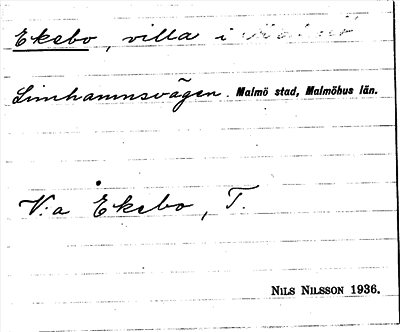 Ekebo, villa i Malmö
Limhamnsvägen. Malmö stad, Malmöhus län.
V:a Ekebo, T.
NILS NILSSON 1936.